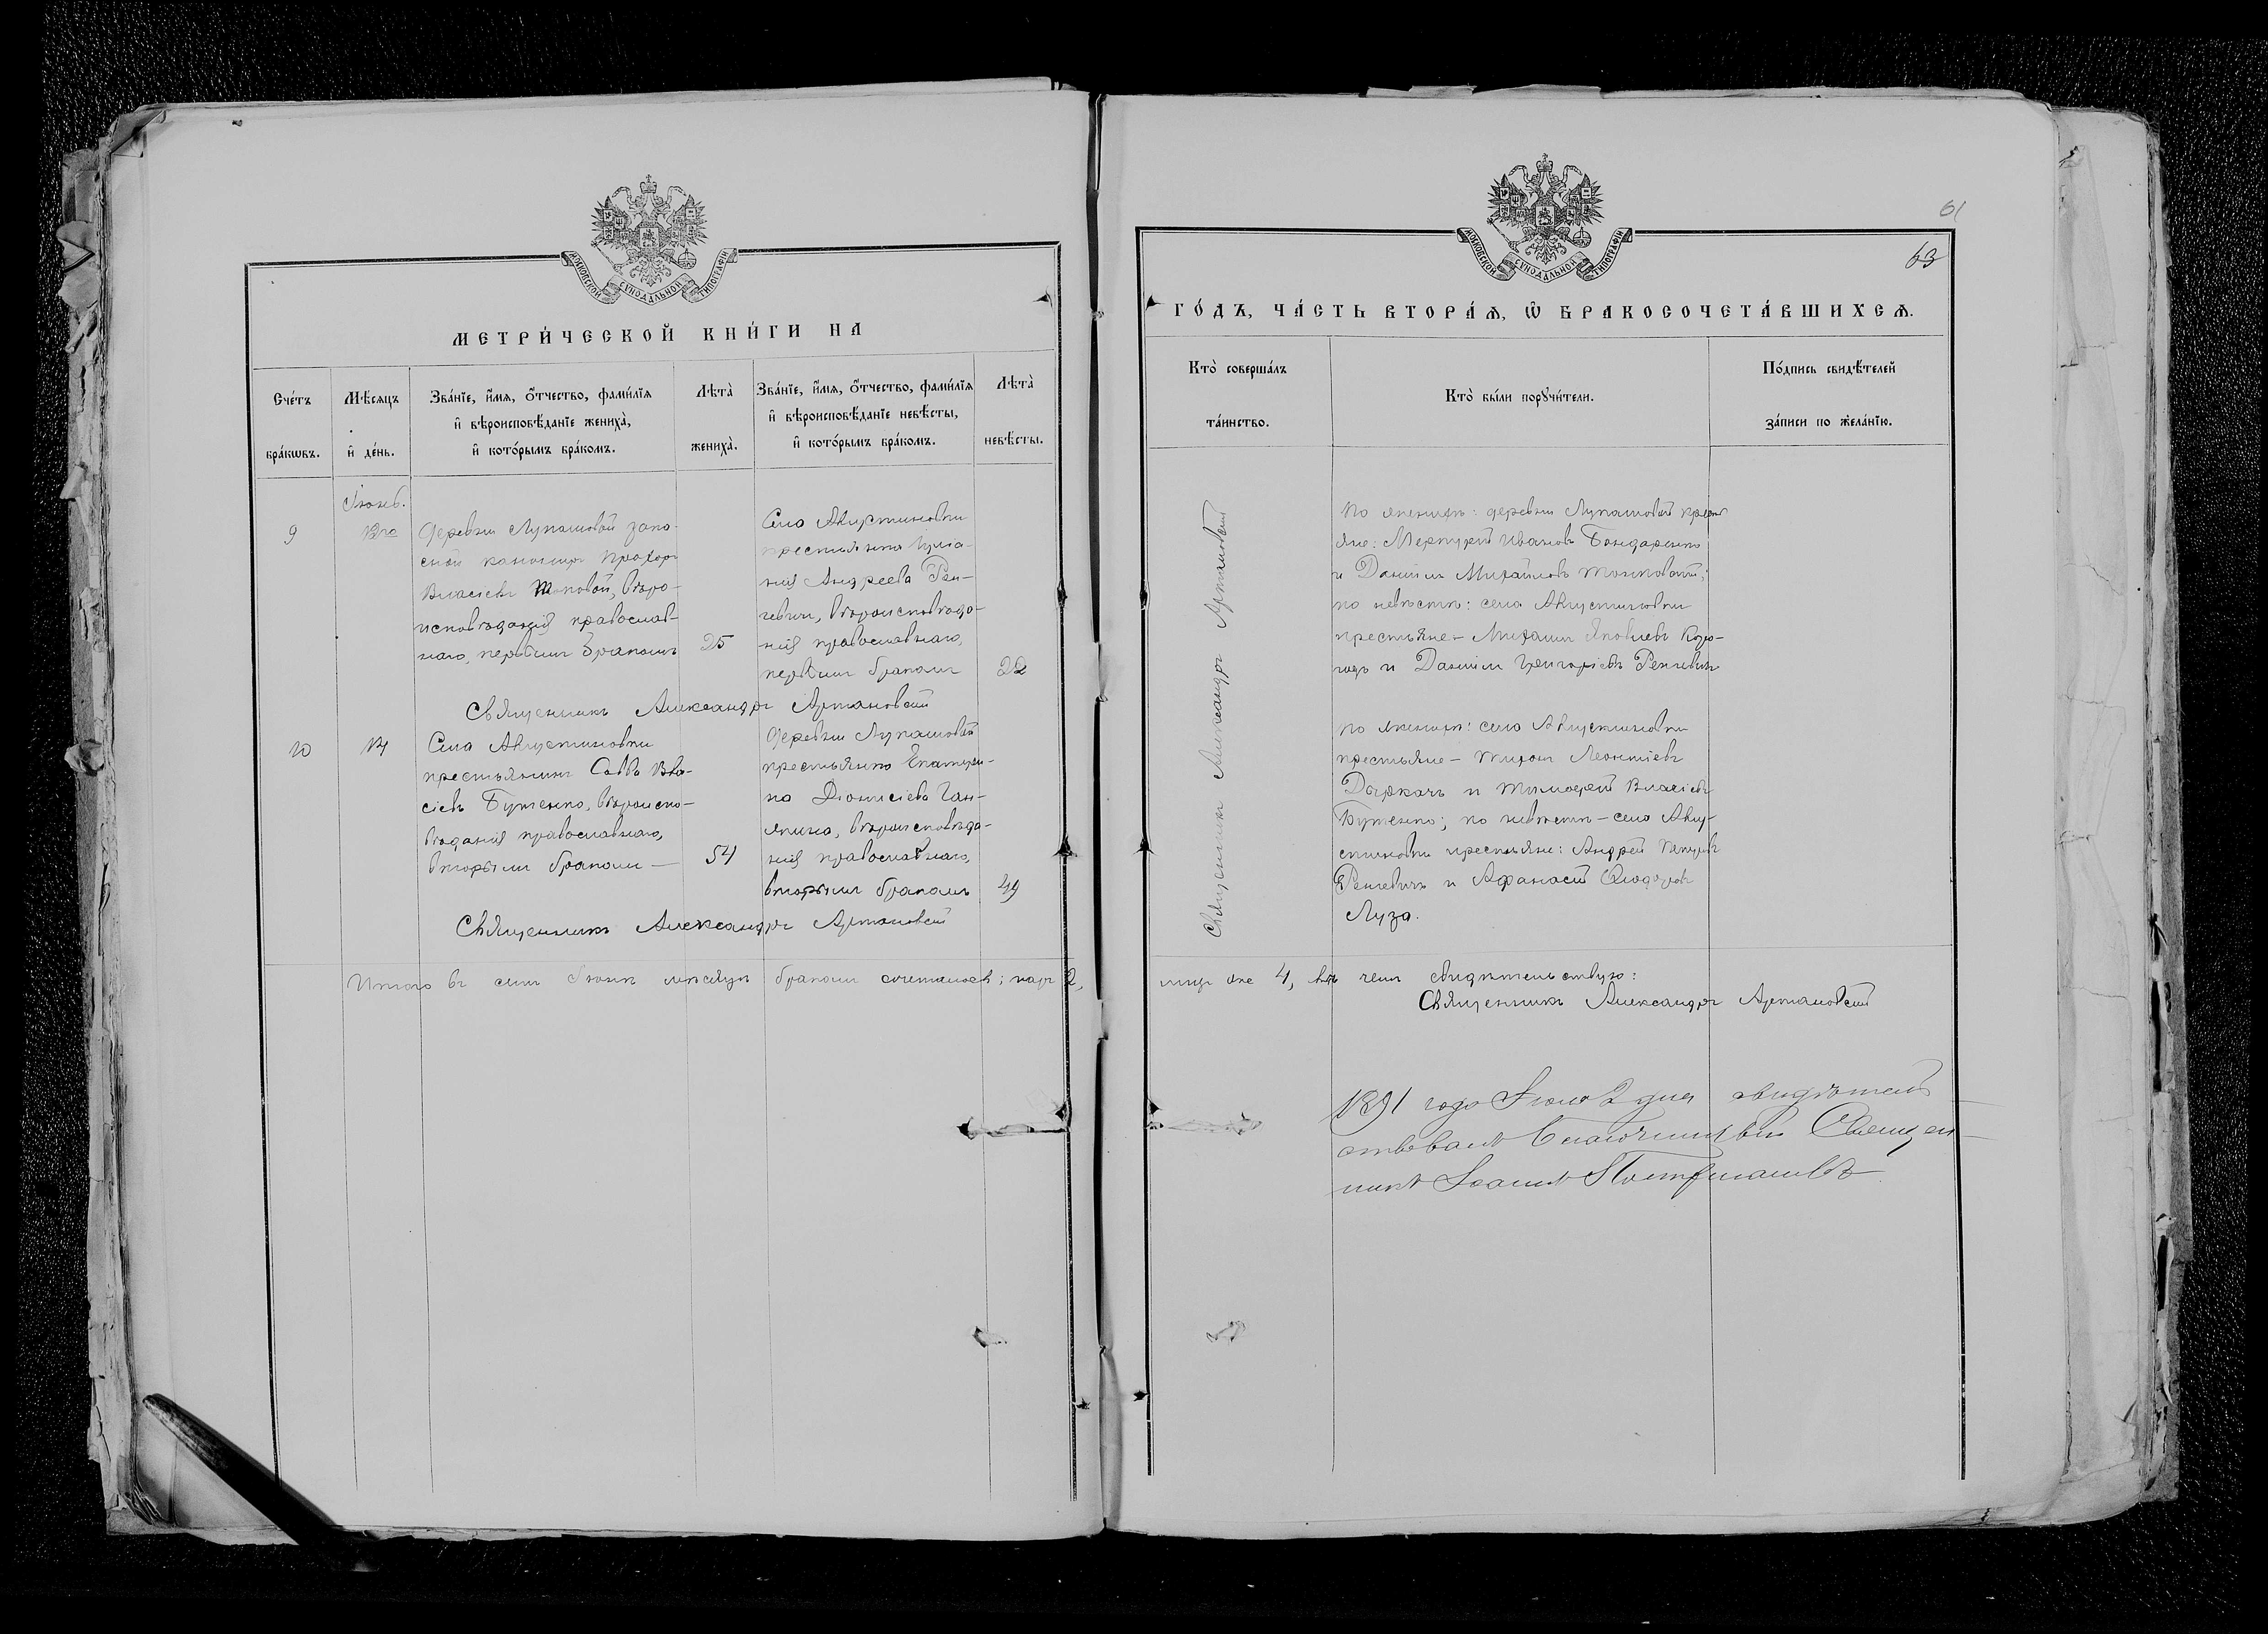 МОСКОВСКОЙ СѴНОДАЛЬНОЙ ТИПОГРАФІИ
МЕТРИ́ЧЕСКОЙ КНИ́ГИ НА
Сче́тъ бра́кѡвъ.
Мѣ́сяцъ и҆ де́нь.
Зва́нїе, и҆́мя, ѻ҆́тчество, фами́лїя
и҆ вѣроисповѣ́данїе жениха̀,
и҆ кото́рымъ бра́комъ.
Лѣта̀ жениха̀.
Зва́нїе, и҆́мя, ѻ҆́тчество, фами́лїя
и҆ вѣроисповѣ́данїе невѣ́сты,
и҆ кото́рымъ бра́комъ.
Лѣта̀ невѣ́сты.
Іюнь.
9
Деревни Лупашовой запа-
сной канониръ Прохоръ
Власіевъ вѣро-
исповѣданія православ-
наго, первымъ бракомъ
25
Села Августиновки
крестьянка
Андреева Рен-
гевичъ, вѣроисповѣда-
нія православнаго,
первымъ бракомъ
22
Священникъ Александръ Артановскій
10
Села Августиновки
крестьянинъ Савва Вла-
сіевъ Бутенко, вѣроиспо-
вѣданія православнаго,
вторымъ бракомъ —
54
Деревни Лупашовой
крестьянка Екатери-
на Діонисіева Ган-
вѣроисповѣда-
нія православнаго,
вторымъ бракомъ
49
Священникъ Александръ Артановскій
Итого въ семъ Іюнѣ мѣсяцѣ бракомъ сочеталось; паръ 2,
61
63
МОСКОВСКОЙ СѴНОДАЛЬНОЙ ТИПОГРАФІИ
ГО́ДЪ, ЧА́СТЬ ВТОРА́Ѧ, Ѽ БРАКОСОЧЕТА́ВШИХСѦ.
Кто̀ соверша́лъ та́инство.
Кто̀ бы́ли порꙋчи́тели.
По́дпись свидѣ́телей за́писи по жела́нїю.
Священникъ Александръ Артановскій
По женихѣ: деревни Лупашовой кресть
яне: Меркурій Ивановъ Бондаренко
и Даніилъ Михайловъ
по невѣстѣ: села Августиновки
крестьяне — Михаилъ Яковлевъ
и Даніилъ Григоріевъ Ренгевичъ
по женихѣ: села Августиновки
крестьяне — Тихонъ Леонтіевъ
Дыркачъ и Тимофей Власіевъ
Бутенко; по невѣстѣ — села Авгу-
стиновки крестьяне: Андрей
Ренгевичъ и Афанасій Ѳеодоровъ
Луза.
лицъ же 4, въ чемъ свидѣтельствую:
Священникъ Александръ Артановскій
1891 года Іюля 2 дня свидѣтель
ствовалъ Благочинный Священ-
никъ Іоаннъ